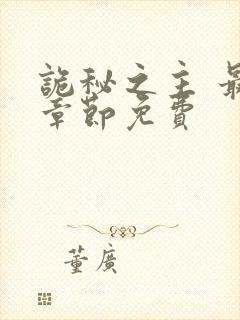 詭秘之主 最
章節免費
董廣